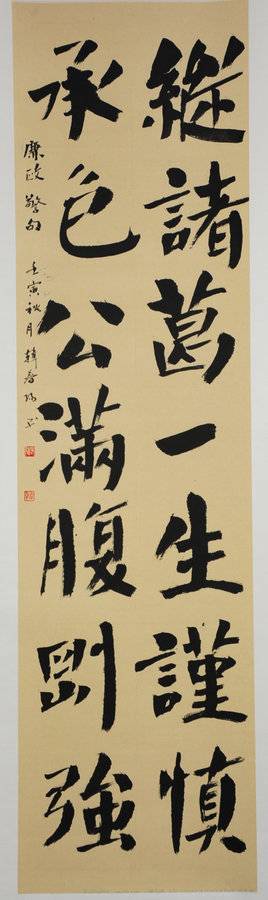 縱諸葛一生謹慎
承包公滿腹剛強
廉政警句 壬寅秋月韓春